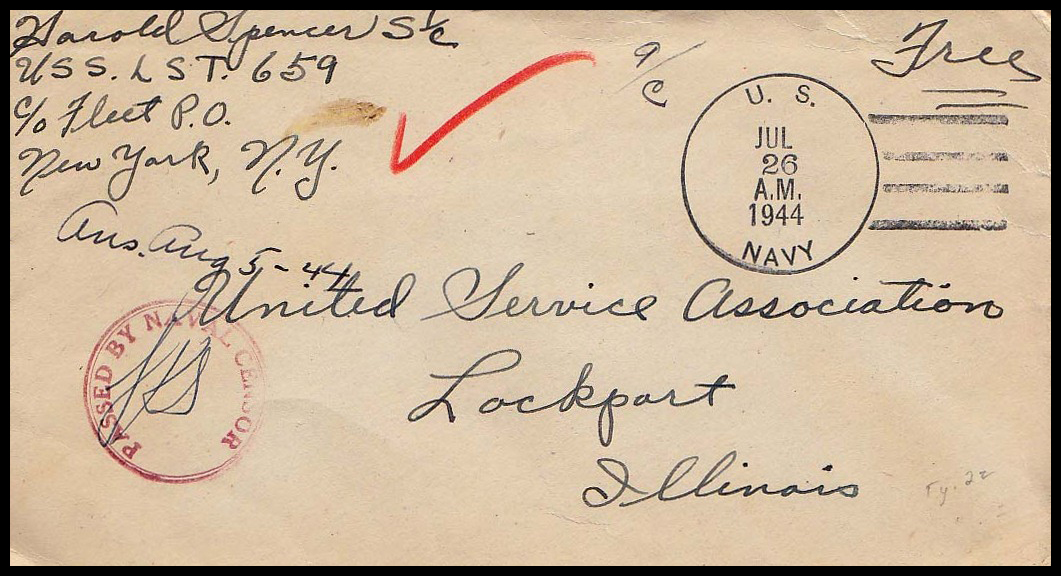 Harold Spencer S 1/c
USS. LST. 659
c/o Fleet P.O.
New York, N.Y.
Free
U. S.
JUL
26
A.M.
1944
NAVY
Ans. Aug 5-44
United Service Association
Lockport
Illinois
PASSED BY NAVAL CENSOR